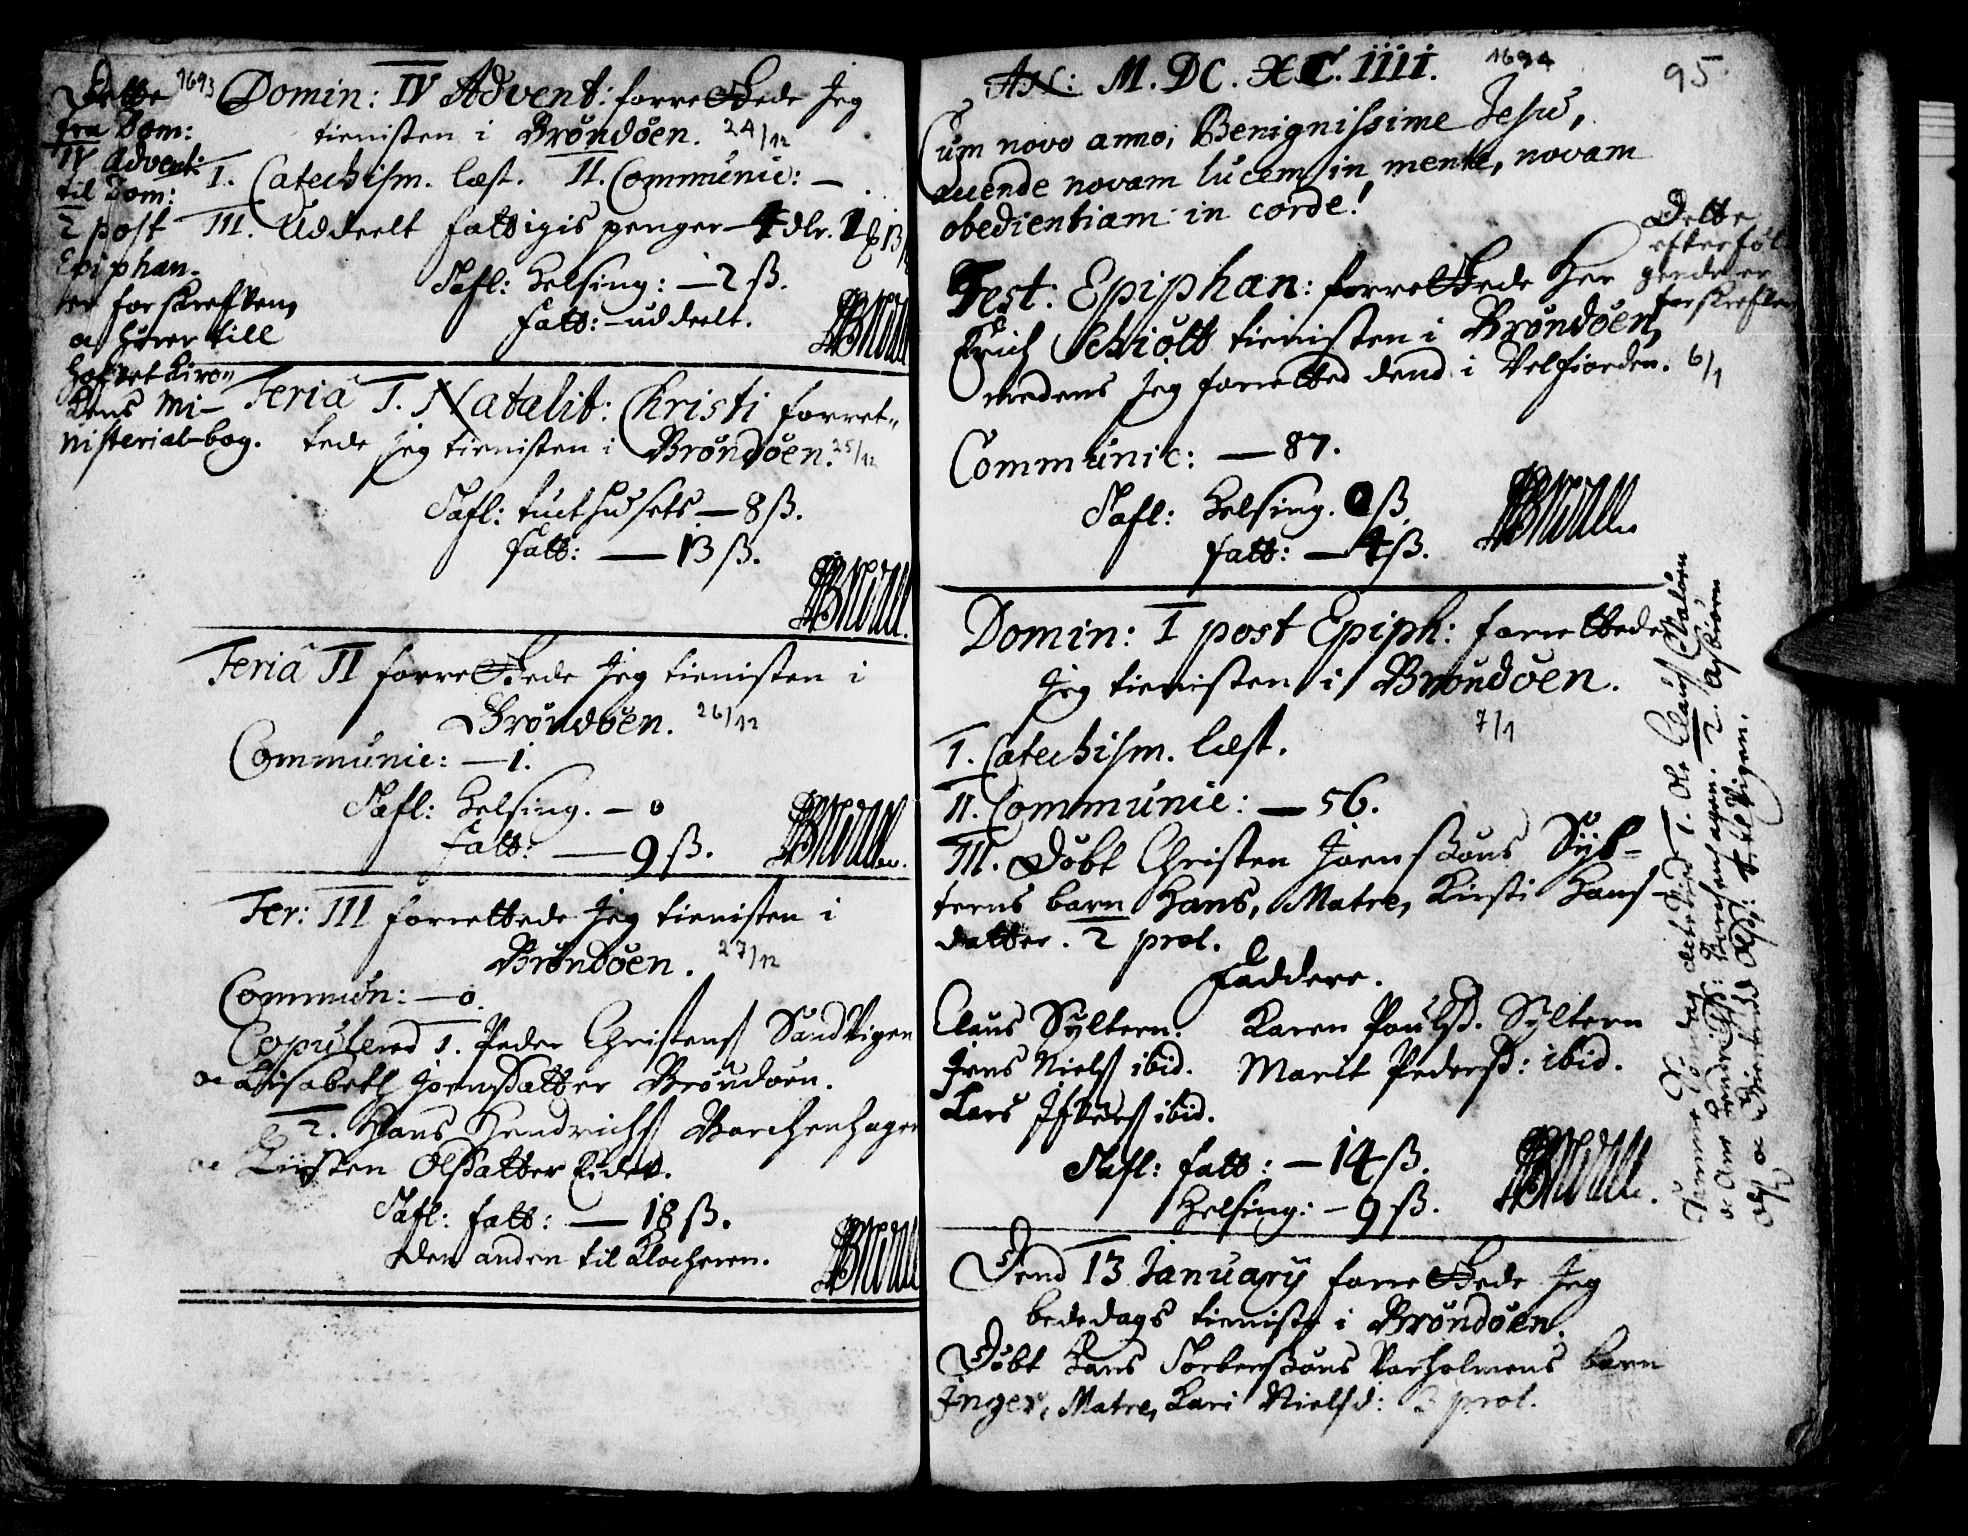 Dette
fra Dom:
IV Advent:
til Dom:
2 post
Epiphan.
er forskrefven,
oc hører till
Hofvet Kirc„
kens Mi-
nisterial-bog.
1693
Domin: IV Advent: forrettede Jeg
tienisten i Brøndøen. 24/12
I. Catechism. læst. II. Communic: —.
III. Uddeelt fattigis penger — 4 dlr. 1
Tafl: Helsing: — 2 ß.
Fatt: — uddeelt.
Feriâ I. Natalit: Christi forret„
tede Jeg tienisten i Brøndøen. 25/12
Tafl: tucthusets — 8 ß.
fatt: — 13 ß.
Feriâ II forrettede Jeg tienisten i
Brøndøen. 26/12
Communic: — 1.
Tafl: Helsing. — 0
Fatt: — 9 ß.
Fer: III forrettede Jeg tienisten i
Brøndøen. 27/12
Commun: — 0.
Copulered 1. Peder Christens Sandvigen
oc Lisabeth Joensdatter Brøndøen.
2. Hans Hendrichs Borchenhagen
oc Kirsten Olsdatter Eidet.
Tafl: fatt: — 18 ß.
Den anden til Klocheren.
AN: M. DC. XC. IIII. 1694
95
Cum novo anno, Benignissime Jesu,
accende novam lucem in mente, novam
obedientiam in corde!
Dette
efterføl
gende er
forskrefven
Fest: Epiphan: forrettede Her
Erich Schiøtt tienisten i Brøndøen,
medens Jeg forretted dend i Velfiorden. 6/1
Communic: — 87.
Tafl: Helsing. 0 ß.
fatt: — 4 ß.
Domin: I post Epiph: forrettede
Jeg tienisten i Brøndøen.
7/1
I. Catechism. læst.
II. Communic: — 56.
III. Døbt Christen Joenssøns Syl-
terns barn Hans, Matre, Kirsti Hans-
datter. 2 prol.
Faddere.
Claus Syltern. Karen Poulsd. Syltern
Jens Niels ibid. Marit Pedersd: ibid.
Lars Ifvers ibid.
Tafl: fatt: — 14 ß.
Helsing: — 9 ß.
Samme Søndag
Dend 13 January forrettede Jeg
bededags tieniste i Brøndøen.
Døbt Hans Torberssøns Torholmens barn
Inger, Matre, Kari Nielsd: 3 prol.